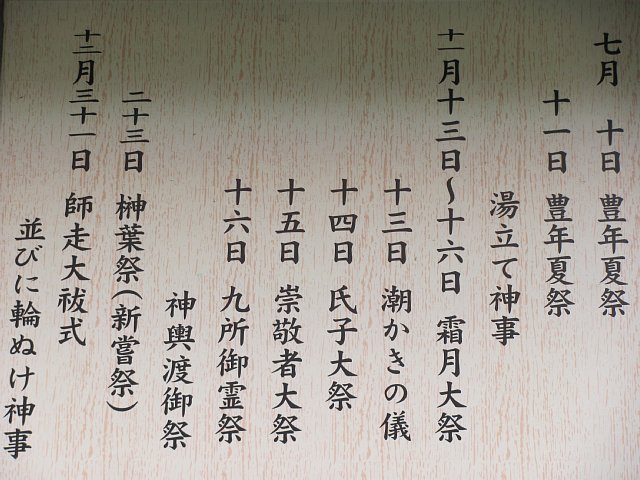 七月　十日　豊年夏祭
十一日　豊年夏祭
湯立て神事
十一月十三日～十六日　霜月大祭
十三日　潮かきの儀
十四日　氏子大祭
十五日　崇敬者大祭
十六日　九所御霊祭
神輿渡御祭
二十三日　榊葉祭(新嘗祭)
十二月三十一日　師走大祓式
並びに輪ぬけ神事